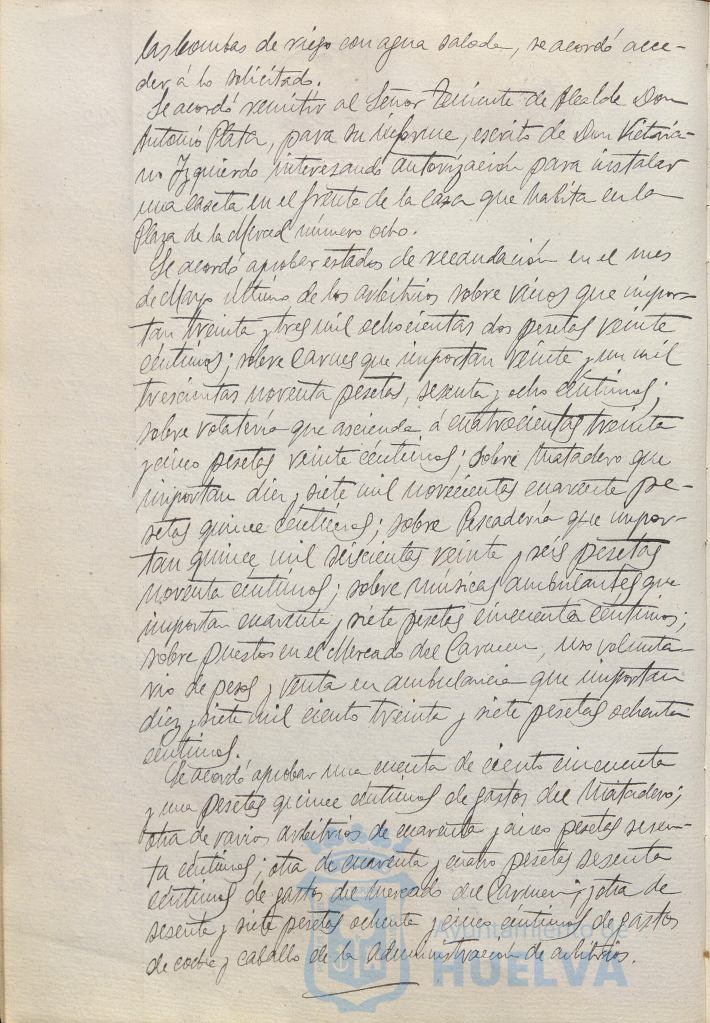 las bombas de riego con agua salada, se acordó acce-
der á lo solicitado.
Se acordó remitir al Señor Teniente de Alcalde Don
Antonio Plata, para su informe, escrito de Don Victoria-
no Izquierdo interesando autorización para instalar
una caseta en el frente de la casa que habita en la
Plaza de la Merced número ocho.
Se acordó aprobar estados de recaudación en el mes
de Mayo último de los arbitrios sobre vinos que impor-
tan treinta y tres mil ochocientas dos pesetas veinte
céntimos; sobre Carnes que importan veinte y un mil
trescientas noventa pesetas, sesenta y ocho céntimos;
sobre volatería que asciende á cuatrocientas treinta
y cinco pesetas veinte céntimos; sobre Matadero que
importan diez y siete mil novecientas cuarenta pe-
setas quince céntimos; sobre Pescadería que impor-
tan quince mil seiscientas veinte y seis pesetas
noventa céntimos; sobre músicas ambulantes que
importan cuarenta y siete pesetas cincuenta céntimos;
sobre puestos en el Mercado del Carmen, uso volunta-
rio de pesos y venta en ambulancia que importan
diez y siete mil ciento treinta y siete pesetas ochenta
céntimos.
Se acordó aprobar una cuenta de ciento cincuenta
y una pesetas quince céntimos de gastos del Matadero;
otra de varios arbitrios de cuarenta y cinco pesetas sesen-
ta céntimos; otra de cuarenta y cuatro pesetas sesenta
céntimos de gastos del Mercado del Carmen; y otra de
sesenta y siete pesetas ochenta y cinco céntimos de gastos
de coche y caballo de la administración de arbitrios.
Ayuntamiento de
HUELVA